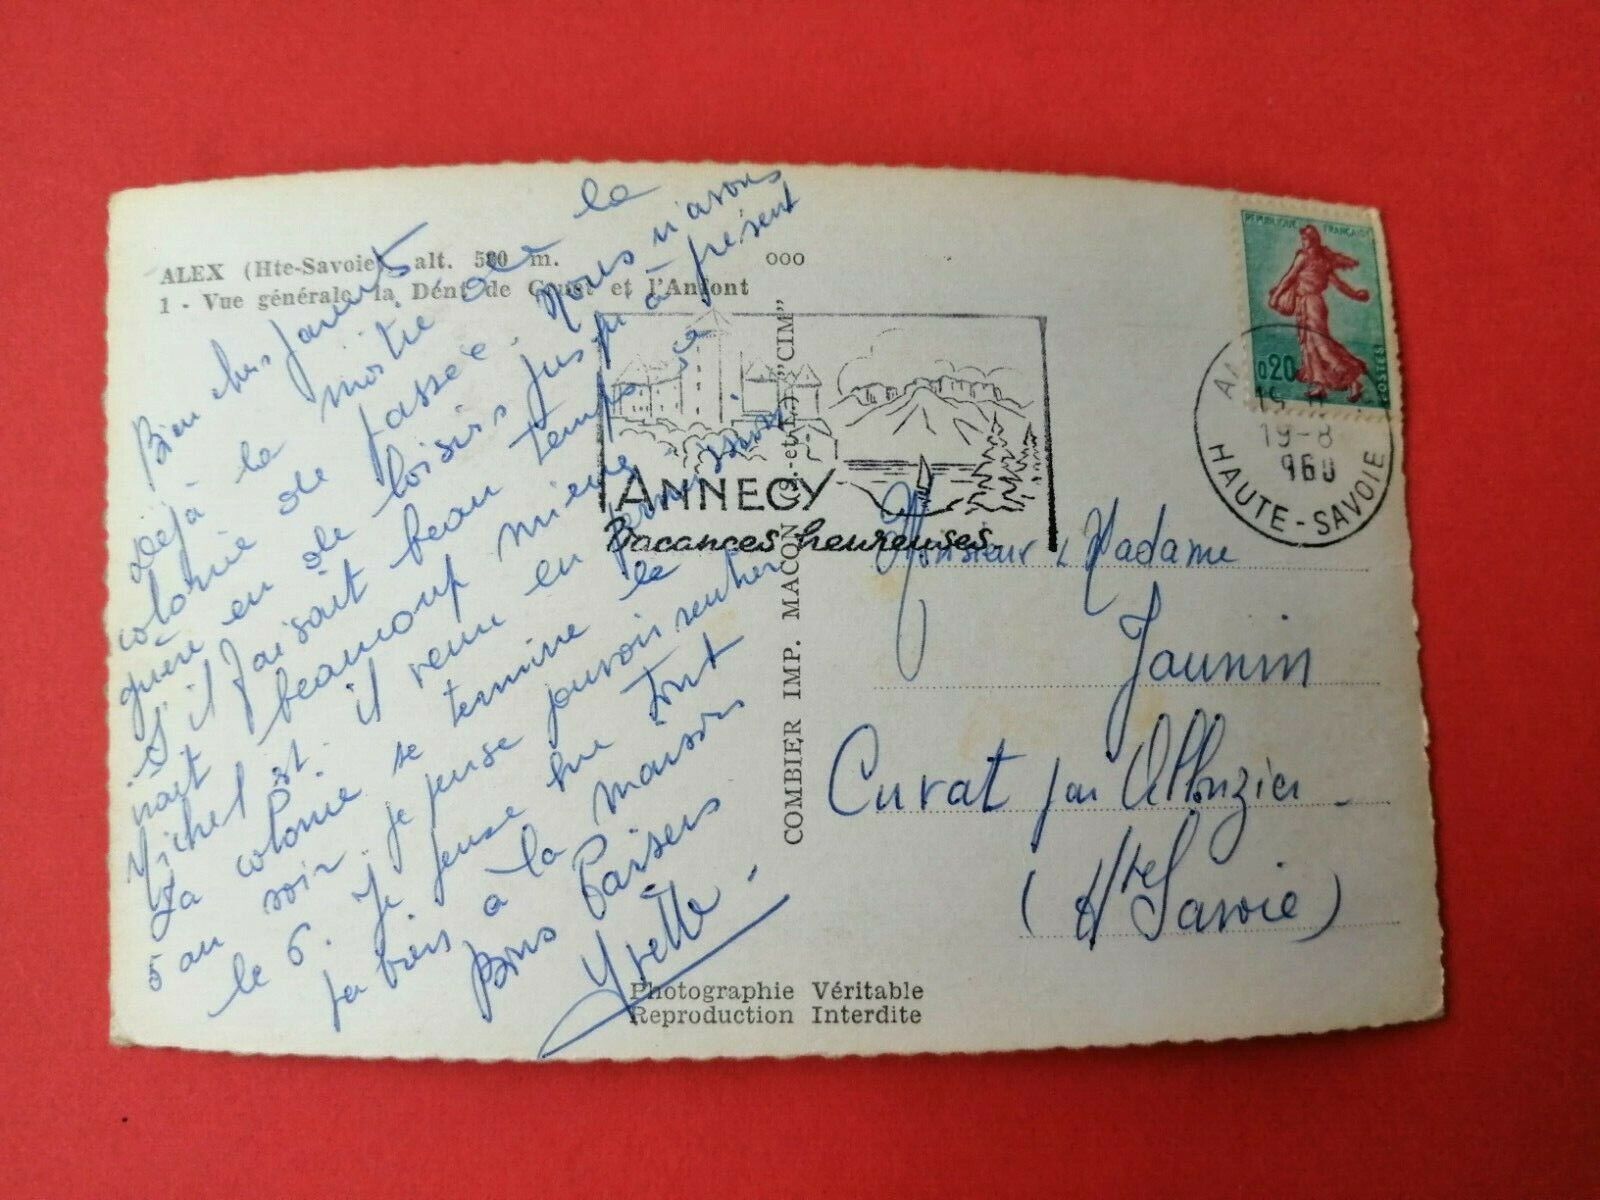 ALEX (Hte-Savoie) alt. 580 m. ooo
1 - Vue générale la Dent de Cruet et l'Anfont
Bien chers parents
Déjà la moitié de la
colonie de passée. Nous n'avons
guère eu de loisirs jusqu'à présent
S'il faisait beau temps ce
irait beaucoup mieux.
Michel est-il venu en permission
La colonie se termine le
5 au soir. je pense pouvoir rentrer
le 6. Je pense que tout
va bien à la maison
Bons Baisers
Yvette
COMBIER IMP. MACON (S.-et-L.) "CIM"
ANNECY
Vacances heureuses
REPUBLIQUE FRANÇAISE
0,20
POSTES
19-8
1960
HAUTE-SAVOIE
Monsieur & Madame
Jaunin
Curvat par Albuzier
(Hte Savoie)
Photographie Véritable
Reproduction Interdite